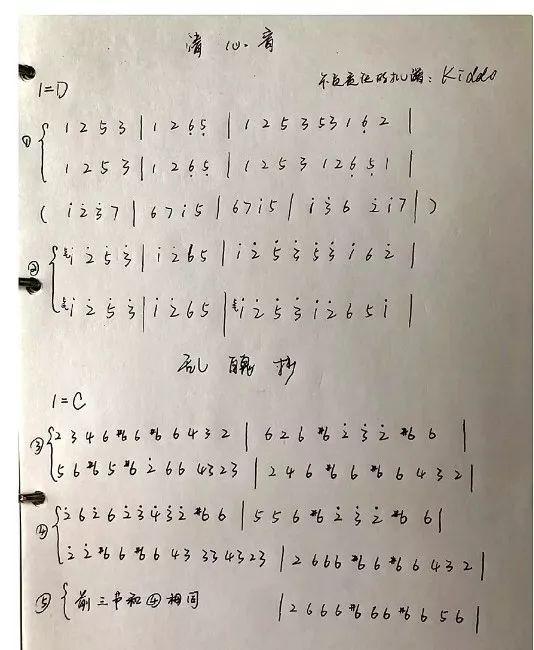 清心音
1=D 不负责任的扒谱：Kiddo
① 1 2 5 3 | 1 2 6̣ 5̣ | 1 2 5 3 5 3 1 6̣ 2 |
1 2 5 3 | 1 2 6̣ 5̣ | 1 2 5 3 1 2 6̣ 5̣ 1 |
( i̇ 2̇ 3̇ 7 | 6 7 i̇ 5 | 6 7 i̇ 5 | i̇ 3̇ 6 2̇ i̇ 7 | )
② i̇ 2̇ 5̇ 3̇ | i̇ 2̇ 6 5 | i̇ 2̇ 5̇ 3̇ 5̇ 3̇ i̇ 6 2̇ |
i̇ 2̇ 5̇ 3̇ | i̇ 2̇ 6 5 | i̇ 2̇ 5̇ 3̇ i̇ 2̇ 6 5 i̇ |
乱魄抄
1=C
③ 2 3 4 6 #6 6 #6 6 4 3 2 | 6 2 6 #6 2̇ 3̇ 2̇ #6 6 |
5 6 #6 5 #6 2̇ 6 6 4 3 2 3 | 2 4 6 #6 6 #6 6 4 3 2 |
④ 2̇ 6 2̇ 6 2̇ 3̇ 4̇ 3̇ 2̇ #6 6 | 5 5 6 #6 2̇ 3̇ 2̇ #6 6 |
2̇ 2̇ #6 6 #6 6 4 3 3 3 4 3 2 3 | 2 6 6 6 #6 6 #6 6 4 3 2 |
⑤ 前三节和④相同 | 2 6 6 6 #6 6 6 #6 6 5 6 |